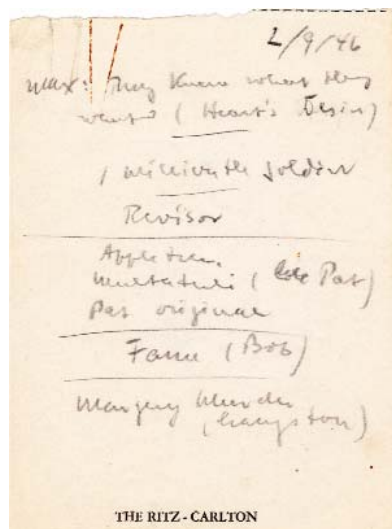 2/9/46
Max: They knew what they
want (Heart's Desire)
1 millionth soldier
Revisor
Appletree,
Multatuli ( Pat)
Pat original
Fame (Bob)
Margery Murder
(Langston)
THE RITZ - CARLTON